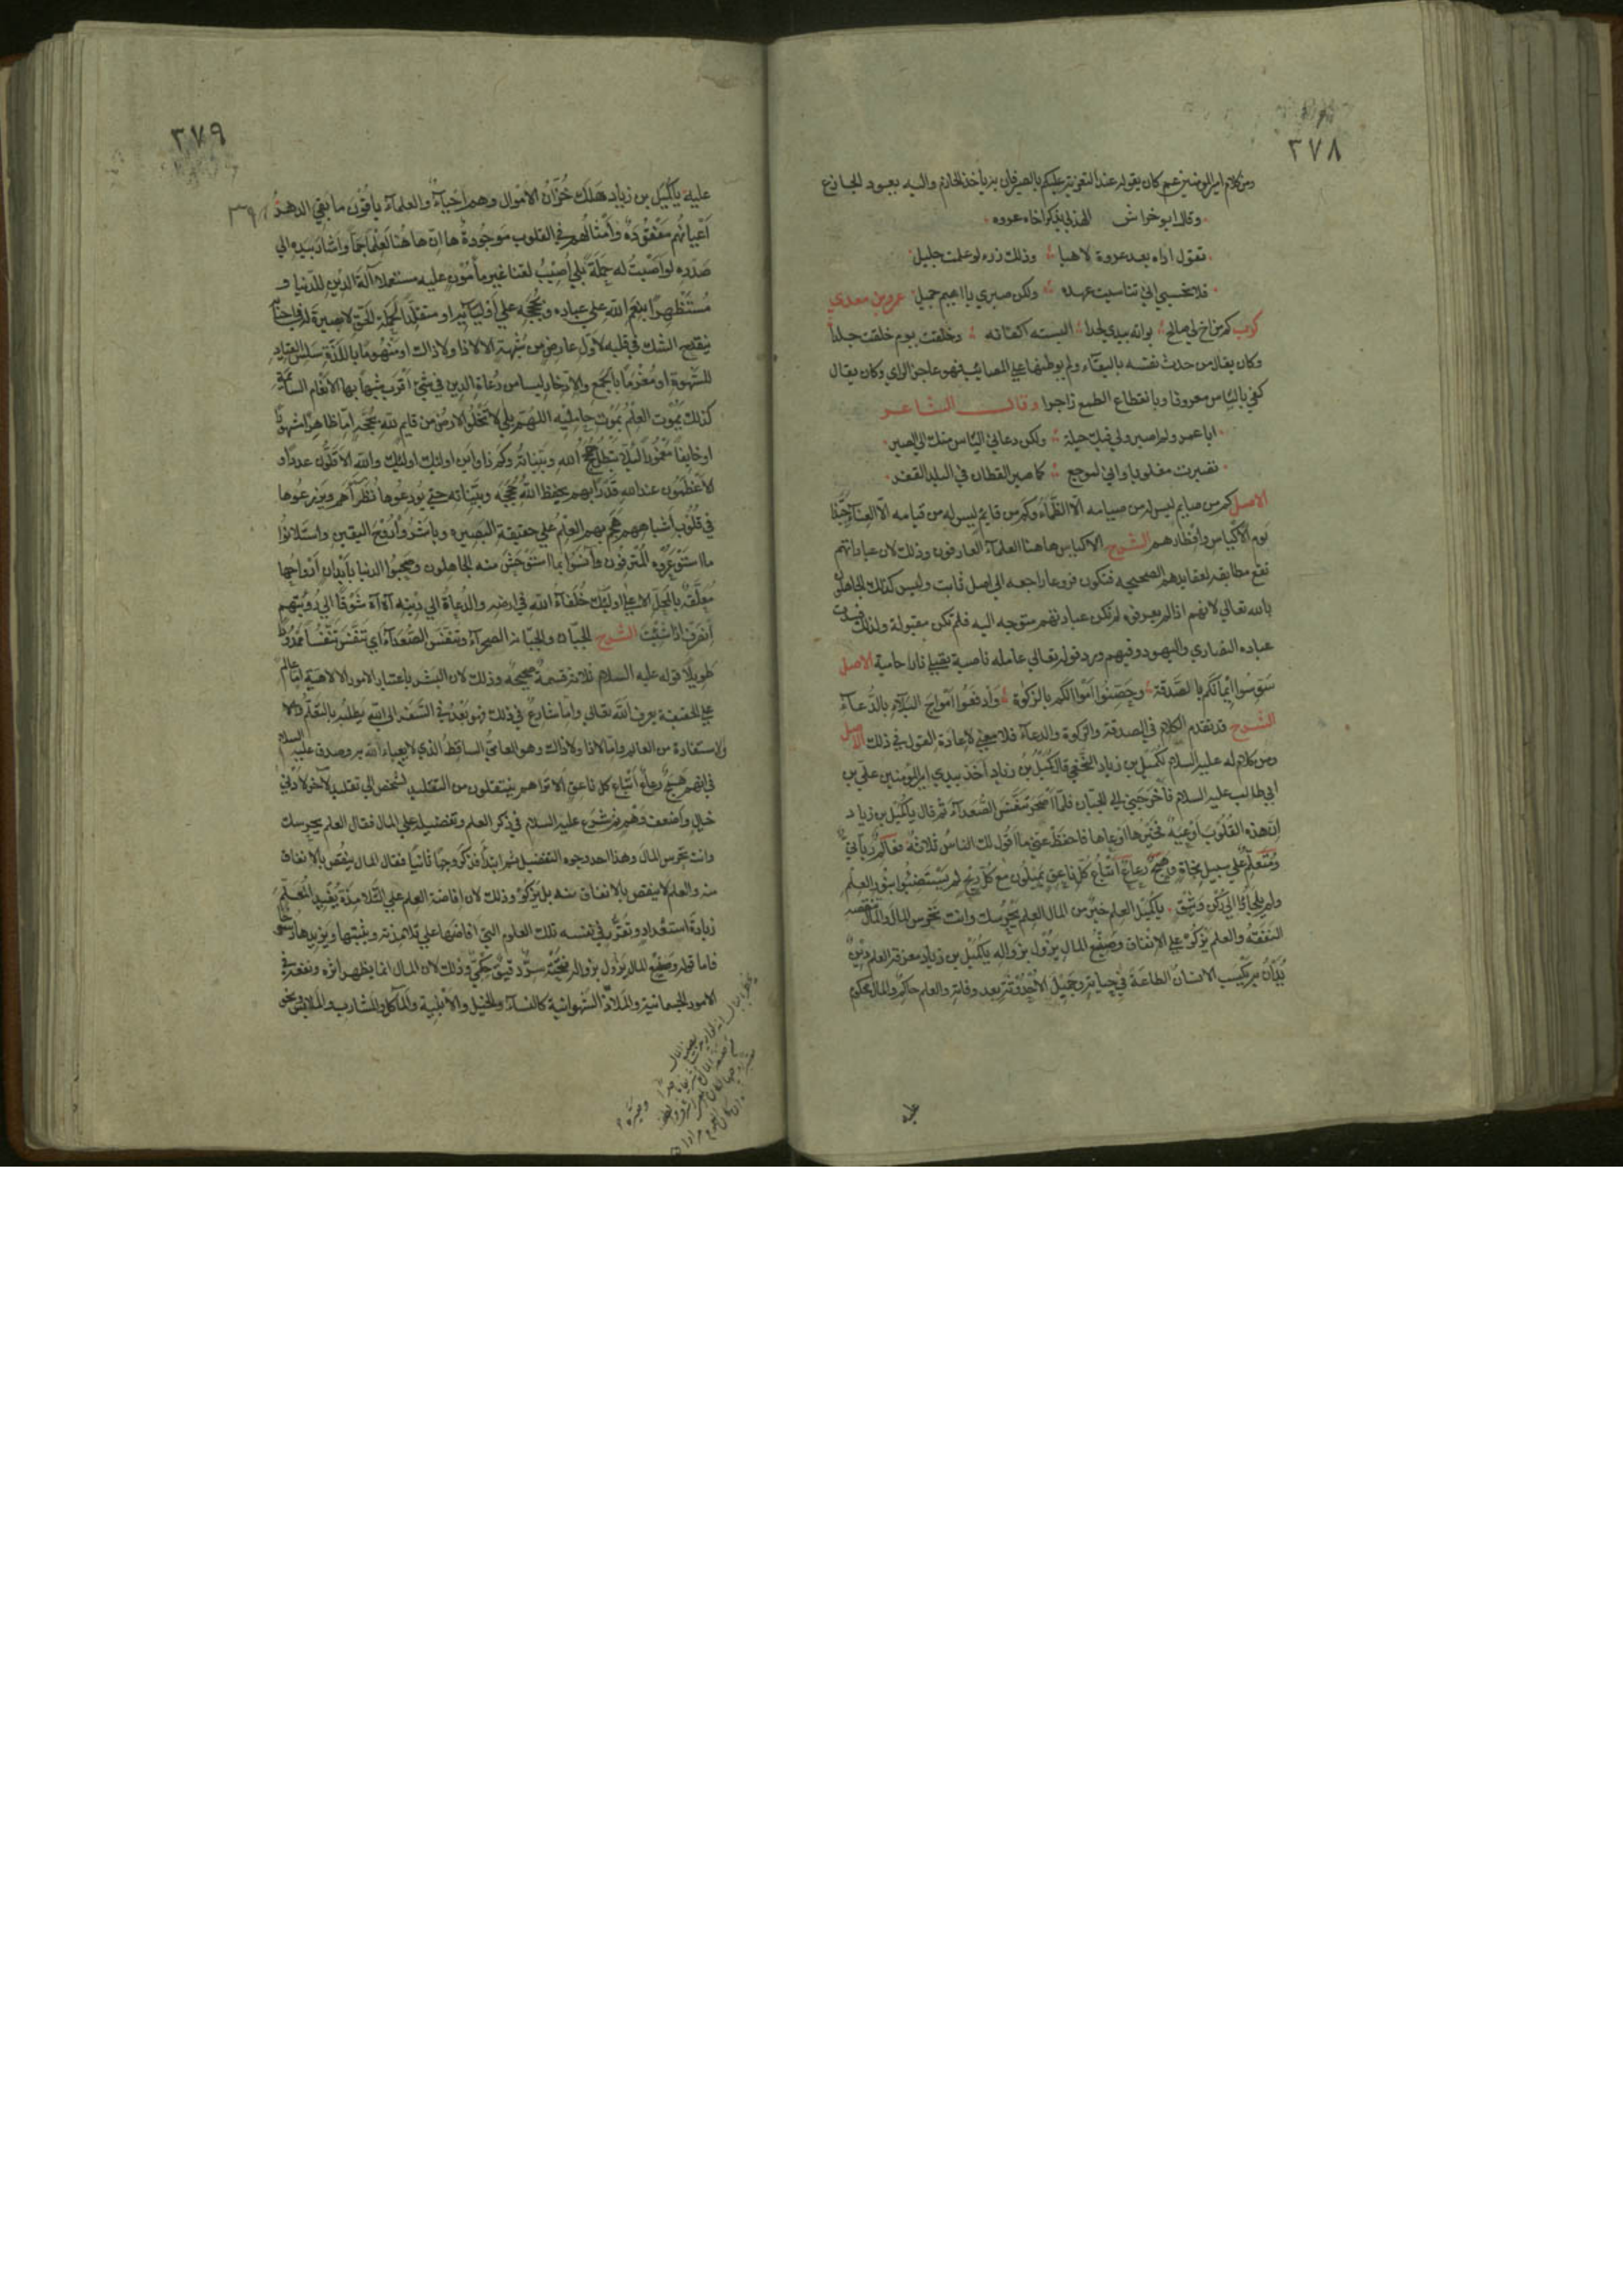 ٢٧٨
ومن كلام امير المومنين عم كان يقوله عند التعزية عليكم بالصبر فان به ياخذ الحازم واليه يعود الجازع
وقال ابو خراش الهذلي يذكر اخاه عروه
تقول اراه بعد عروة لاهيا وذلك رزء لو علمت جليل
فلا تحسبي اني تناسيت عهده ولكن صبري يا اميم جميل عمرو بن معدي
كرب كم من اخ لي صالح بواته بيدي لحدا البسته اكفانه وخلقت يوم خلقت جلدا
وكان يقال من حدث نفسه بالبقاء ولم يوطنها علي المصائب فهو عاجز الراي وكان يقال
كفي بالياس معزيا وبانقطاع الطمع زاجرا وقال الشاعر
ايا عمرو لم اصبر ولي فيك حيلة ولكن دعاني الياس منك الي الصبر
تصبرت مغلوبا واني لموجع كما صبر القطان في البلد القفر
الاصل كم من صايم ليس له من صيامه الا الظماء وكم من قايم ليس له من قيامه الا العناء حبذا
نوم الاكياس وافطارهم الشرح الاكياس هاهنا العلماء العارفون وذلك لان عباداتهم
تقع مطابقه لعقايدهم الصحيحه فتكون فروعا راجعه الي اصل ثابت وليس كذلك الجاهلون
بالله تعالي لانهم اذا لم يعرفوه لم تكن عباداتهم متوجه اليه فلم تكن مقبولة ولذلك فسدت
عباده النصاري واليهود وفيهم ورد قوله تعالي عامله ناصبة تصلي نارا حامية الاصل
سوسوا ايمانكم بالصدقة وحصنوا اموالكم بالزكوة وادفعوا امواج البلاء بالدعاء
الشرح قد تقدم الكلام في الصدقة والزكوة والدعاء فلا معني لاعادة القول في ذلك الاصل
ومن كلام له عليه السلام لكميل بن زياد النخعي قال كميل بن زياد اخذ بيدي امير المومنين علي بن
ابي طالب عليه السلام فاخرجني الي الجبان فلما اصحر تنفس الصعداء ثم قال يا كميل بن زياد
ان هذه القلوب اوعية فخيرها اوعاها فاحفظ عني ما اقول لك الناس ثلاثة فعالم رباني
ومتعلم علي سبيل نجاة وهمج رعاع اتباع كل ناعق يميلون مع كل ريح لم يستضيئوا بنور العلم
ولم يلجاؤا الي ركن وثيق يا كميل العلم خير من المال العلم يحرسك وانت تحرس المال والمال تنقصه
النفقة والعلم يزكو علي الانفاق وصنيع المال يزول بزواله يا كميل بن زياد معرفة العلم دين
يدان به يكسب الانسان الطاعة في حياته وجميل الاحدوثة بعد وفاته والعلم حاكم والمال محكوم
عليه
٣٧٩
عليه يا كميل بن زياد هلك خزان الاموال وهم احياء والعلماء باقون ما بقي الدهر
اعيانهم مفقودة وامثالهم في القلوب موجودة ها ان ها هنا لعلما جما واشار بيده الي
صدره لو اصبت له حملة بلي اصيب لقنا غير مامون عليه مستعملا آلة الدين للدنيا و
مستظهرا بنعم الله علي عباده وبحججه علي اوليايه او منقلدا لحملة الحق لا بصيرة له في احنايه
ينقدح الشك في قلبه لاول عارض من شبهة الا لا ذا ولا ذاك او منهوما باللذة سلس القياد
للشهوة او مغرما بالجمع والادخار ليسا من رعاة الدين في شيء اقرب شبها بها الانعام السائمة
كذلك يموت العلم بموت حامليه اللهم بلي لا تخلوا الارض من قايم لله بحجة اما ظاهرا مشهورا
او خايفا مغمورا ليلا تبطل حجج الله وبيناته وكم ذا واين اوليك اوليك والله الاقلون عددا و
الاعظمون عند الله قدرا بهم يحفظ الله حججه وبيناته حتي يودعوها نظراءهم ويزرعوها
في قلوب اشباههم هجم بهم العلم علي حقيقة البصيره وباشروا روح اليقين واستلانوا
ما استوعره المترفون وانسوا بما استوحش منه الجاهلون وصحبوا الدنيا بابدان ارواحها
معلقة بالمحل الاعلي اوليك خلفاء الله في ارضه والدعاة الي دينه آه آه شوقا الي رؤيتهم
انصرف اذا شئت الشرح الجبان والجبانة الصحراء وتنفس الصعداء اي تنفس تنفسا ممدودا
طويلا قوله عليه السلام ثلاثة قسمة صحيحه وذلك لان البشر باعتبار الامور الالاهية اما عالم
علي الحقيقة يعرف الله تعالي واما شارع في ذلك فهو بعد في السفر الي الله يطلبه بالتعلم
والاستفادة من العالم واما لا ذا ولا ذاك وهو العامي الساقط الذي لا يعباء الله به وصدق عليه السلام
في انهم همج رعاع اتباع كل ناعق الا تراهم ينتقلون من التقليد لشخص الي تقليد لآخر لادني
خيال واضعف وهم ثم شرع عليه السلام في ذكر العلم وتفضيله علي المال فقال العلم يحرسك
وانت تحرس المال وهذا احد وجوه التفضيل ثم ابتدأ فذكر وجها ثانيا فقال المال ينقص بالانفاق
منه والعلم لا ينقص بالانفاق منه بل يزكو وذلك لان افاضة العلم علي التلامذة يفيد المعلم
زيادة استعداد وتقرر في نفسه تلك العلوم التي افاضها علي تلامذته ويثبتها ويزيدها رسوخا
فاما قوله وصنيع المال يزول بزواله فتحته سر دقيق حكمي وذلك لان المال انما يظهر اثره ونفعه في
الامور الجسمانية والملاذ الشهوانية كالنساء والخيل والابنية والمآكل والمشارب والملابس